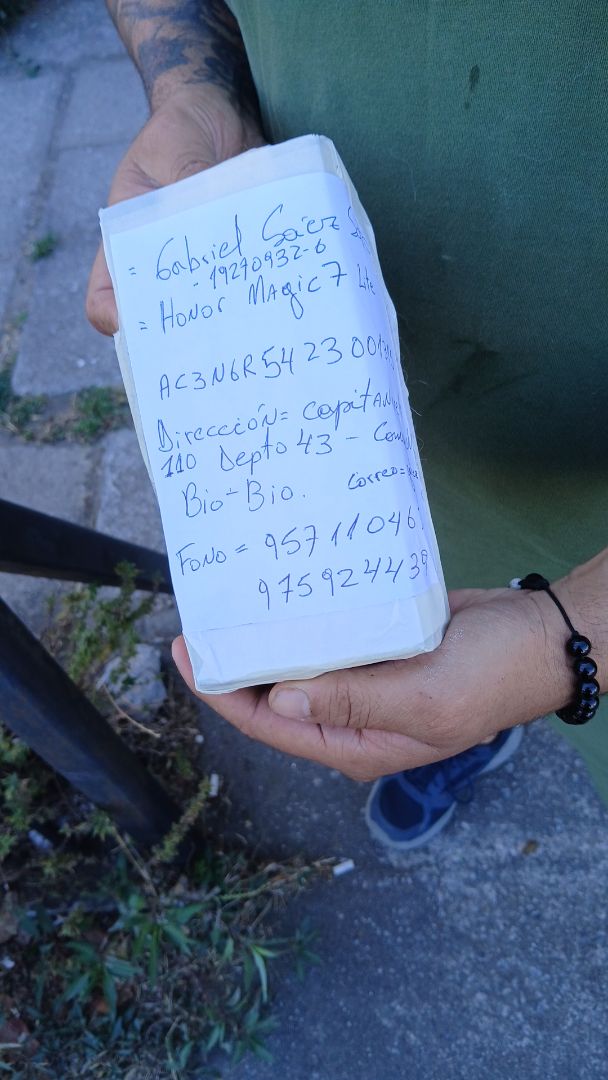 = Gabriel Sáez
- 19270932-6
= HONOR MAGIC 7 Lite
AC3N6R5423001
Dirección = Capitán
110 Depto 43 -
Bio-Bio. Correo=
FONO = 95711046
975924439